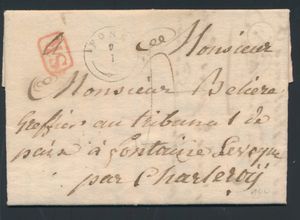 A Monsieur
Monsieur Beliere
Greffier au tribunal de
paix à fontaine Leveque
par Charleroÿ